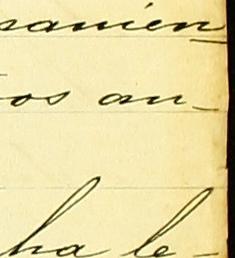 samien
os an-
ha le-